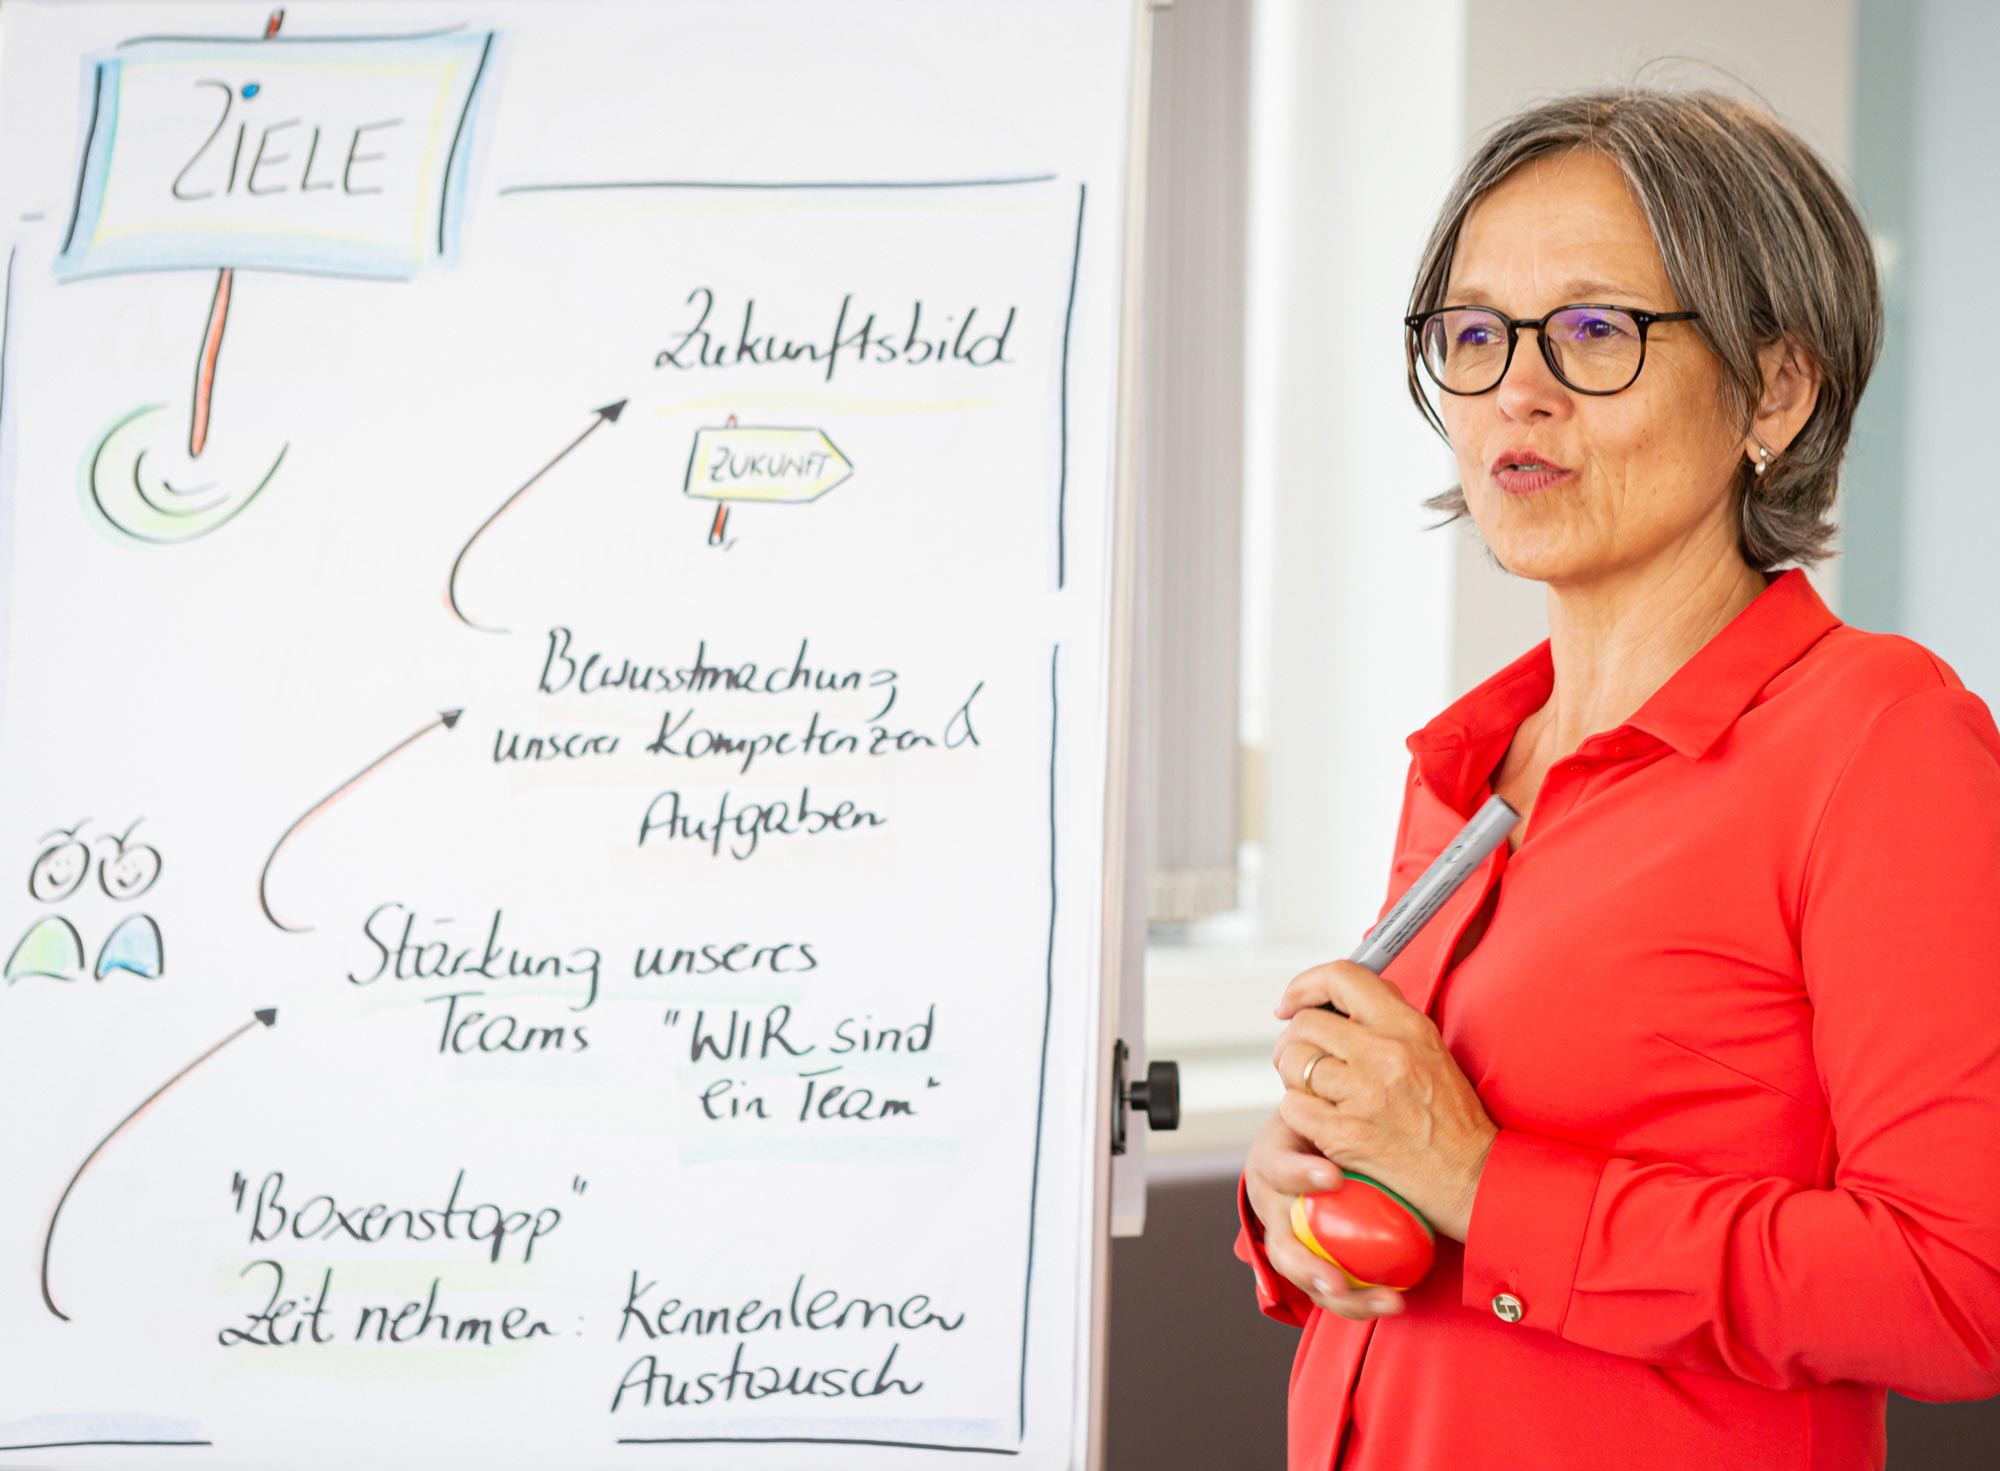 ZIELE
Zukunftsbild
ZUKUNFT
Bewusstmachung
unserer Kompetenzen &
Aufgaben
Stärkung unseres
Teams "WIR sind
ein Team"
"Boxenstopp"
Zeit nehmen: Kennenlernen
Austausch